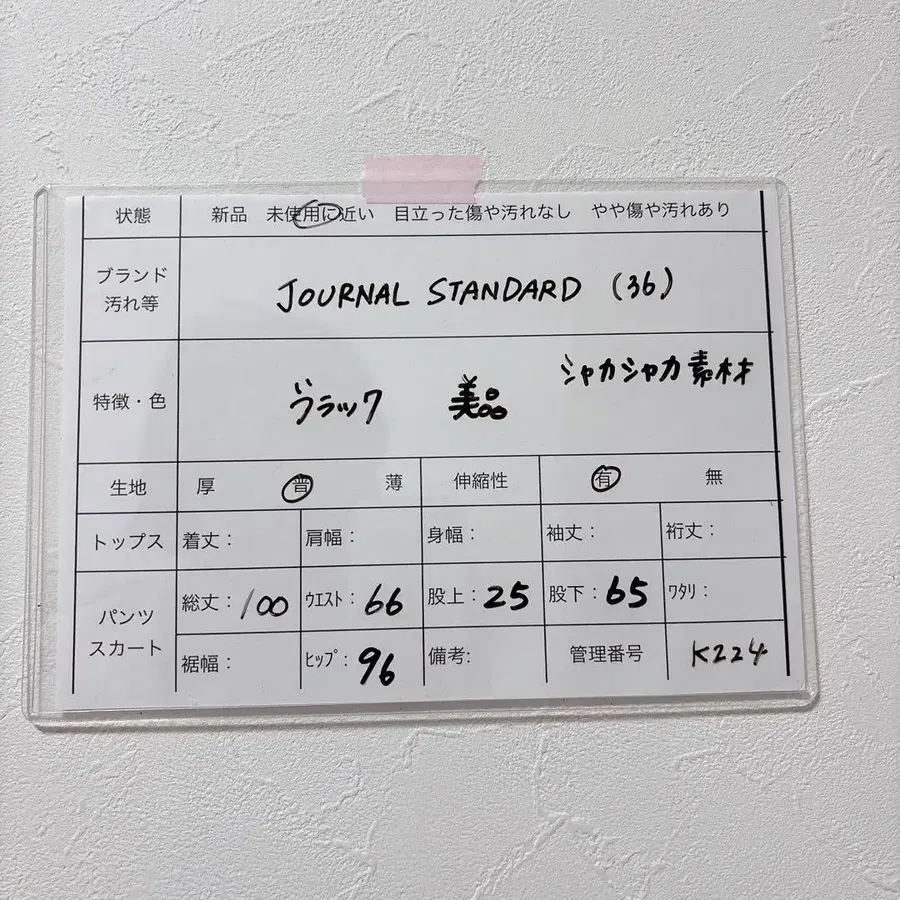 状態 新品 未使用に近い 目立った傷や汚れなし やや傷や汚れあり
ブランド
汚れ等
JOURNAL STANDARD (36)
特徴・色
ブラック 美品 シャカシャカ素材
生地 厚 普 薄 伸縮性 有 無
トップス 着丈： 肩幅： 身幅： 袖丈： 裄丈：
パンツ
スカート
総丈：100 ｳｴｽﾄ：66 股上：25 股下：65 ﾜﾀﾘ：
裾幅： ﾋｯﾌﾟ：96 備考: 管理番号 K224